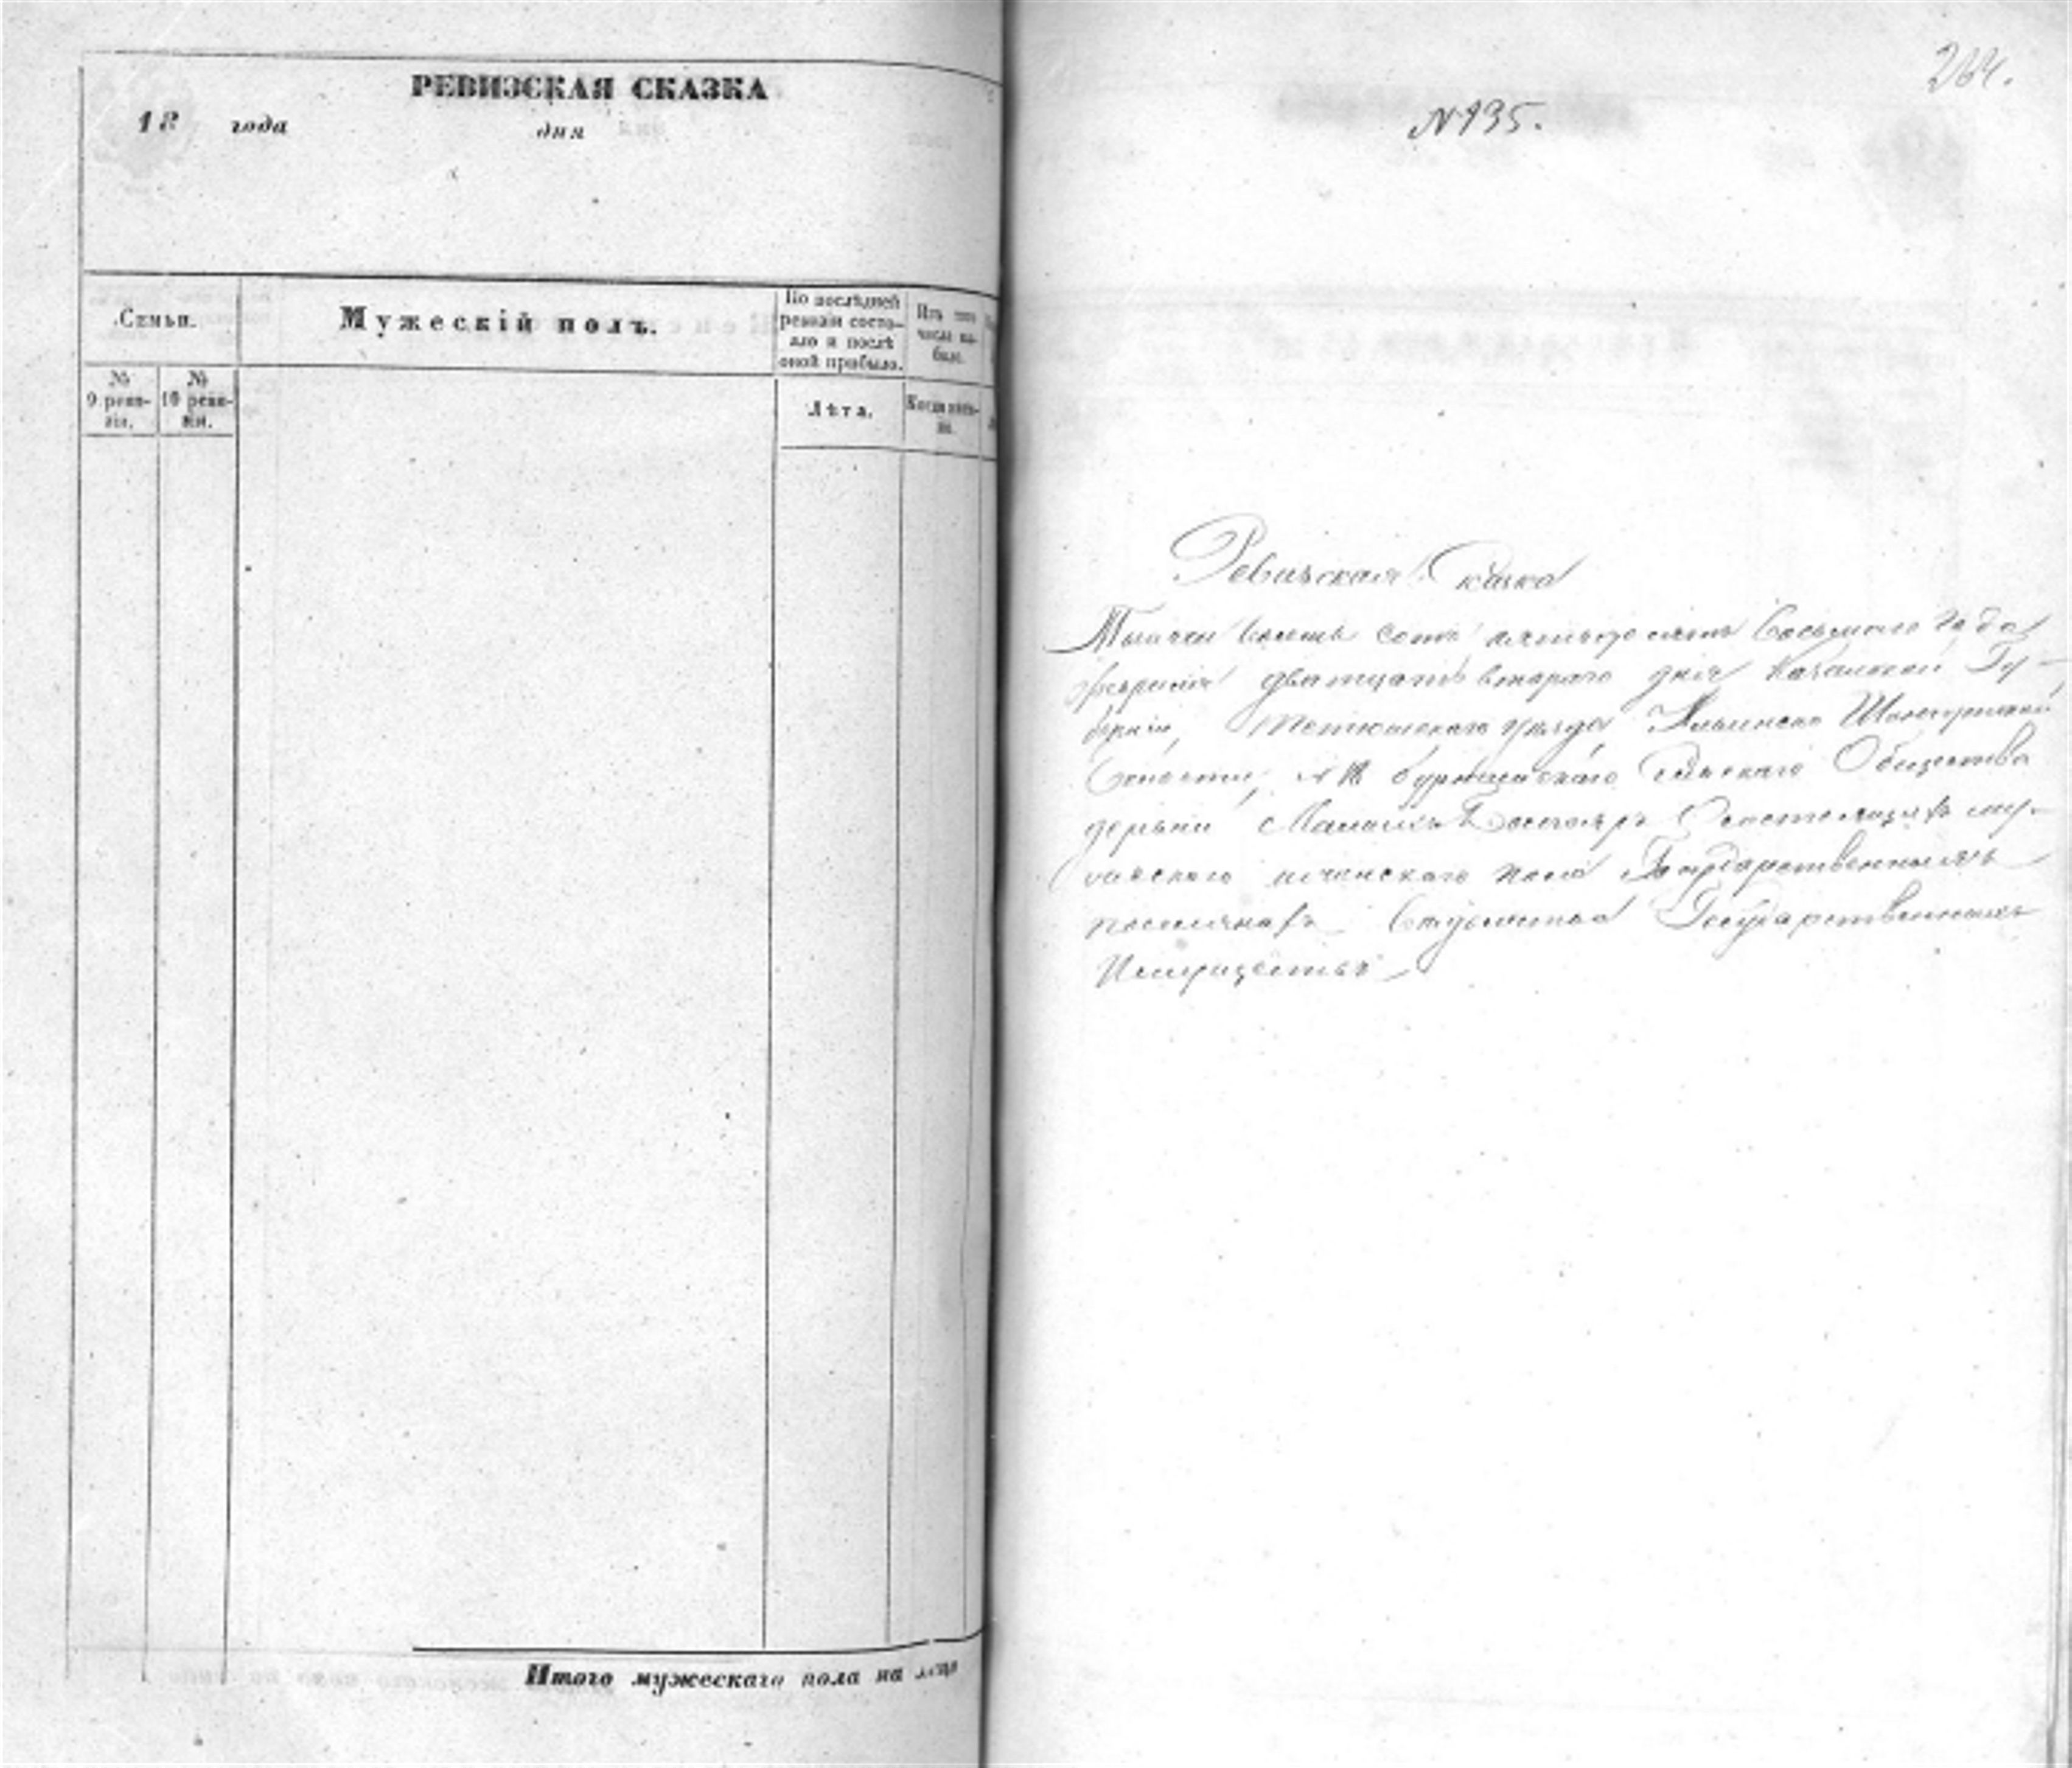 РЕВИЗСКАЯ СКАЗКА
18 года дня
Семьи.
Мужескій полъ.
По послѣдней ревизіи состояло и послѣ оной прибыло.
Изъ того числа выбыло.
№ 9 ревизіи.
№ 10 ревизіи.
Лѣта.
Когда именно.
Итого мужескаго пола на лицо
264.
№ 135.
Ревизская Сказка
Тысяча восемь сотъ пятьдесятъ восьмого года
февраля двадцать втораго дня Казанской Гу-
берніи, Тетюшскаго уѣзда Ильинско
Волости, Сельскаго Общества
деревни состоящихъ му-
женскаго пола Государственныхъ
поселянахъ вѣдомства Государственныхъ
Имуществъ